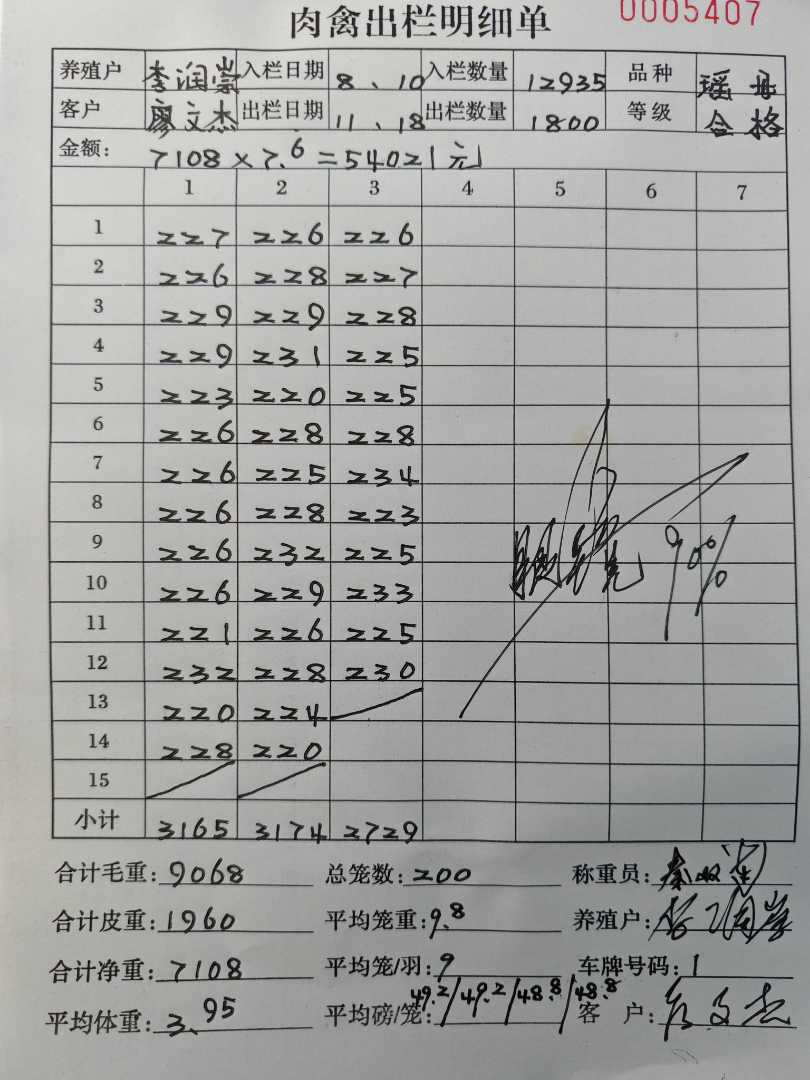 肉禽出栏明细单 0005407
养殖户 李润崇 入栏日期 8、10 入栏数量 12935 品种 瑶丹
客户 廖文杰 出栏日期 11、18 出栏数量 1800 等级 合格
金额: 7108×7.6=54021元
1 2 3 4 5 6 7
1 227 226 226
2 226 228 227
3 229 229 228
4 229 231 225
5 223 220 225
6 226 228 228
7 226 225 234
8 226 228 223
9 226 232 225
10 226 229 233
11 221 226 225
12 232 228 230
13 220 224
14 228 220
15
90%
小计 3165 3174 2729
合计毛重: 9068 总笼数: 200 称重员:
合计皮重: 1960 平均笼重: 9.8 养殖户: 李润崇
合计净重: 7108 平均笼/羽: 9 车牌号码: 1
平均体重: 3.95 平均磅/笼: 49.2/49.2/48.8/48.8 客户: 廖文杰